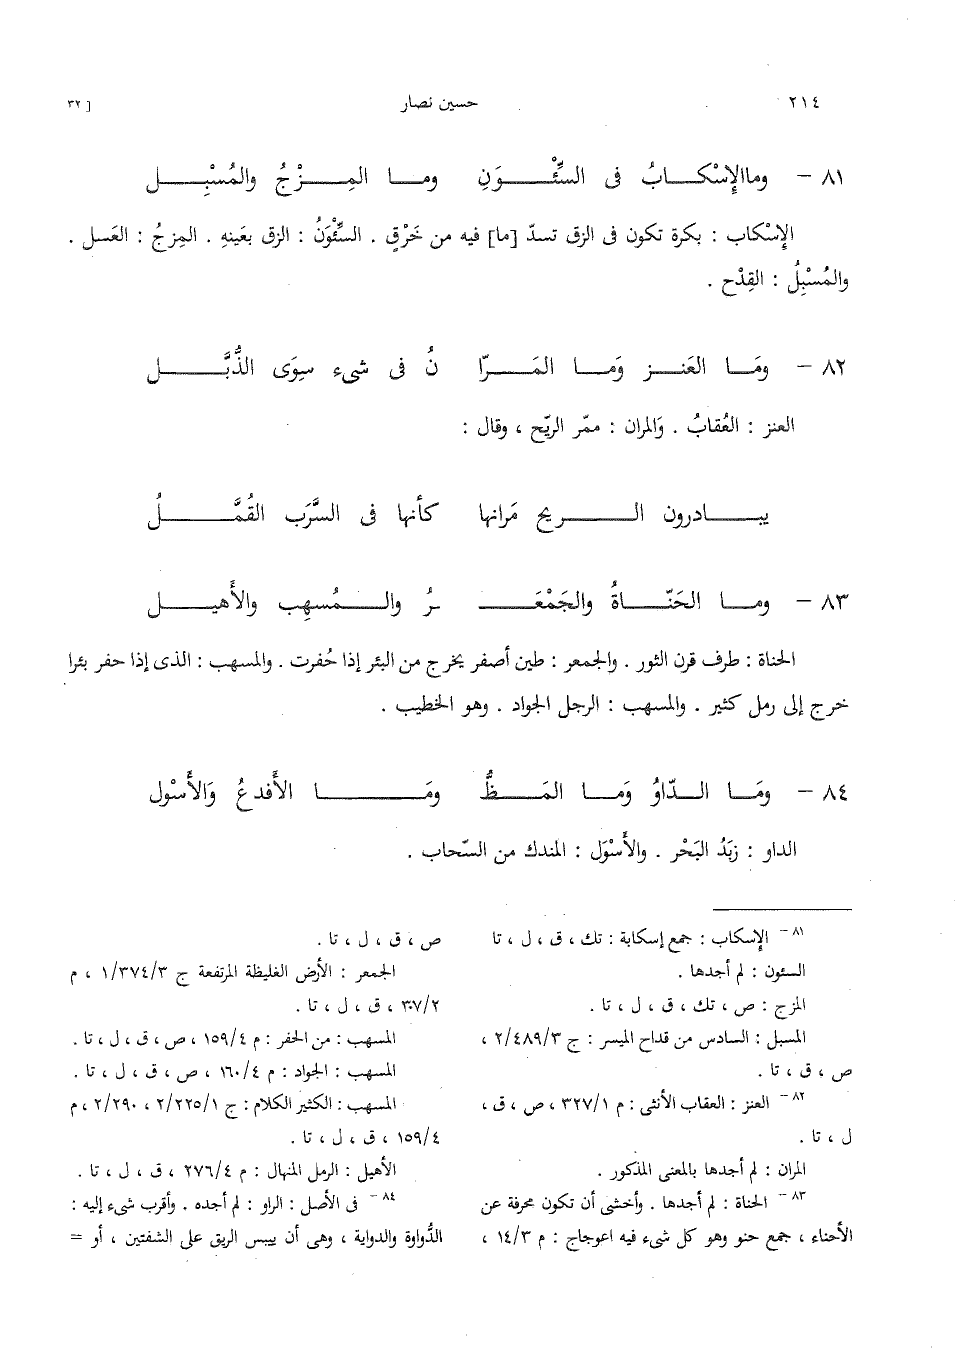 ٢١٤ حسين نصار [ ٣٢
٨١ – وماالإِسْكــابُ فى السِّئْــوَنِ ومــا المِــزْجُ والمُسْبِــل
الإِسْكاب : بكرة تكون فى الزق تسدّ [ما] فيه من خَرْقٍ . السِّئْوَنُ : الزق بعَينهِ . المِزجُ : العَسل .
والمُسْبِلُ : القِدْح .
٨٢ – ومَــا العَنــز وَمــا المَــرّا نُ فى شىء سِوَى الذُّبَّــل
العنز : العُقابُ . وَالمران : ممّر الريّح ، وقال :
يبــادرون الــريح مَرانها كأنها فى السَّرَب القُمَّــلُ
٨٣ – ومــا الحَنّــاةُ والجَمْعَــ ــرُ والــمُسهِب والأَهيــل
الحناة : طرف قرن الثور . والجمعر : طين أصفر يخرج من البئر إذا حُفرت . والمسهب : الذى إذا حفر بئرا
خرج إلى رمل كثير . والمسهب : الرجل الجواد . وهو الخطيب .
٨٤ – ومَــا الــدّاوُ وَمــا المَــظُّ ومَــا الأَفدعُ وَالأَسْول
الداو : زبَدُ البَحْر . والأَسْوَل : المندك من السّحاب .
٨١ – الإِسكاب : جمع إسكابة : تك ، ق ، ل ، تا
السئون : لم أجدها .
المزج : ص ، تك ، ق ، ل ، تا .
المسبل : السادس من قداح الميسر : ج ٢/٤٨٩/٣ ،
ص ، ق ، تا .
٨٢ – العنز : العقاب الأنثى : م ٣٢٧/١ ، ص ، ق ،
ل ، تا .
المران : لم أجدها بالمعنى المذكور .
٨٣ – الحناة : لم أجدها . وأخشى أن تكون محرفة عن
الأحناء ، جمع حنو وهو كل شىء فيه اعوجاج : م ١٤/٣ ،
ص ، ق ، ل ، تا .
الجمعر : الأرض الغليظة المرتفعة ج ١/٣٧٤/٣ ، م
٣٠٧/٢ ، ق ، ل ، تا .
المسهب : من الحفر : م ١٥٩/٤ ، ص ، ق ، ل ، تا .
المسهب : الجواد : م ١٦٠/٤ ، ص ، ق ، ل ، تا .
المسهب : الكثير الكلام : ج ٢/٢٢٥/١ ، ٢/٢٩٠ ، م
١٥٩/٤ ، ق ، ل ، تا .
الأهيل : الرمل المنهال : م ٢٧٦/٤ ، ق ، ل ، تا .
٨٤ – فى الأصل : الراو : لم أجده . وأقرب شىء إليه :
الدُّواوة والدواية ، وهى أن ييبس الريق على الشفتين ، أو =